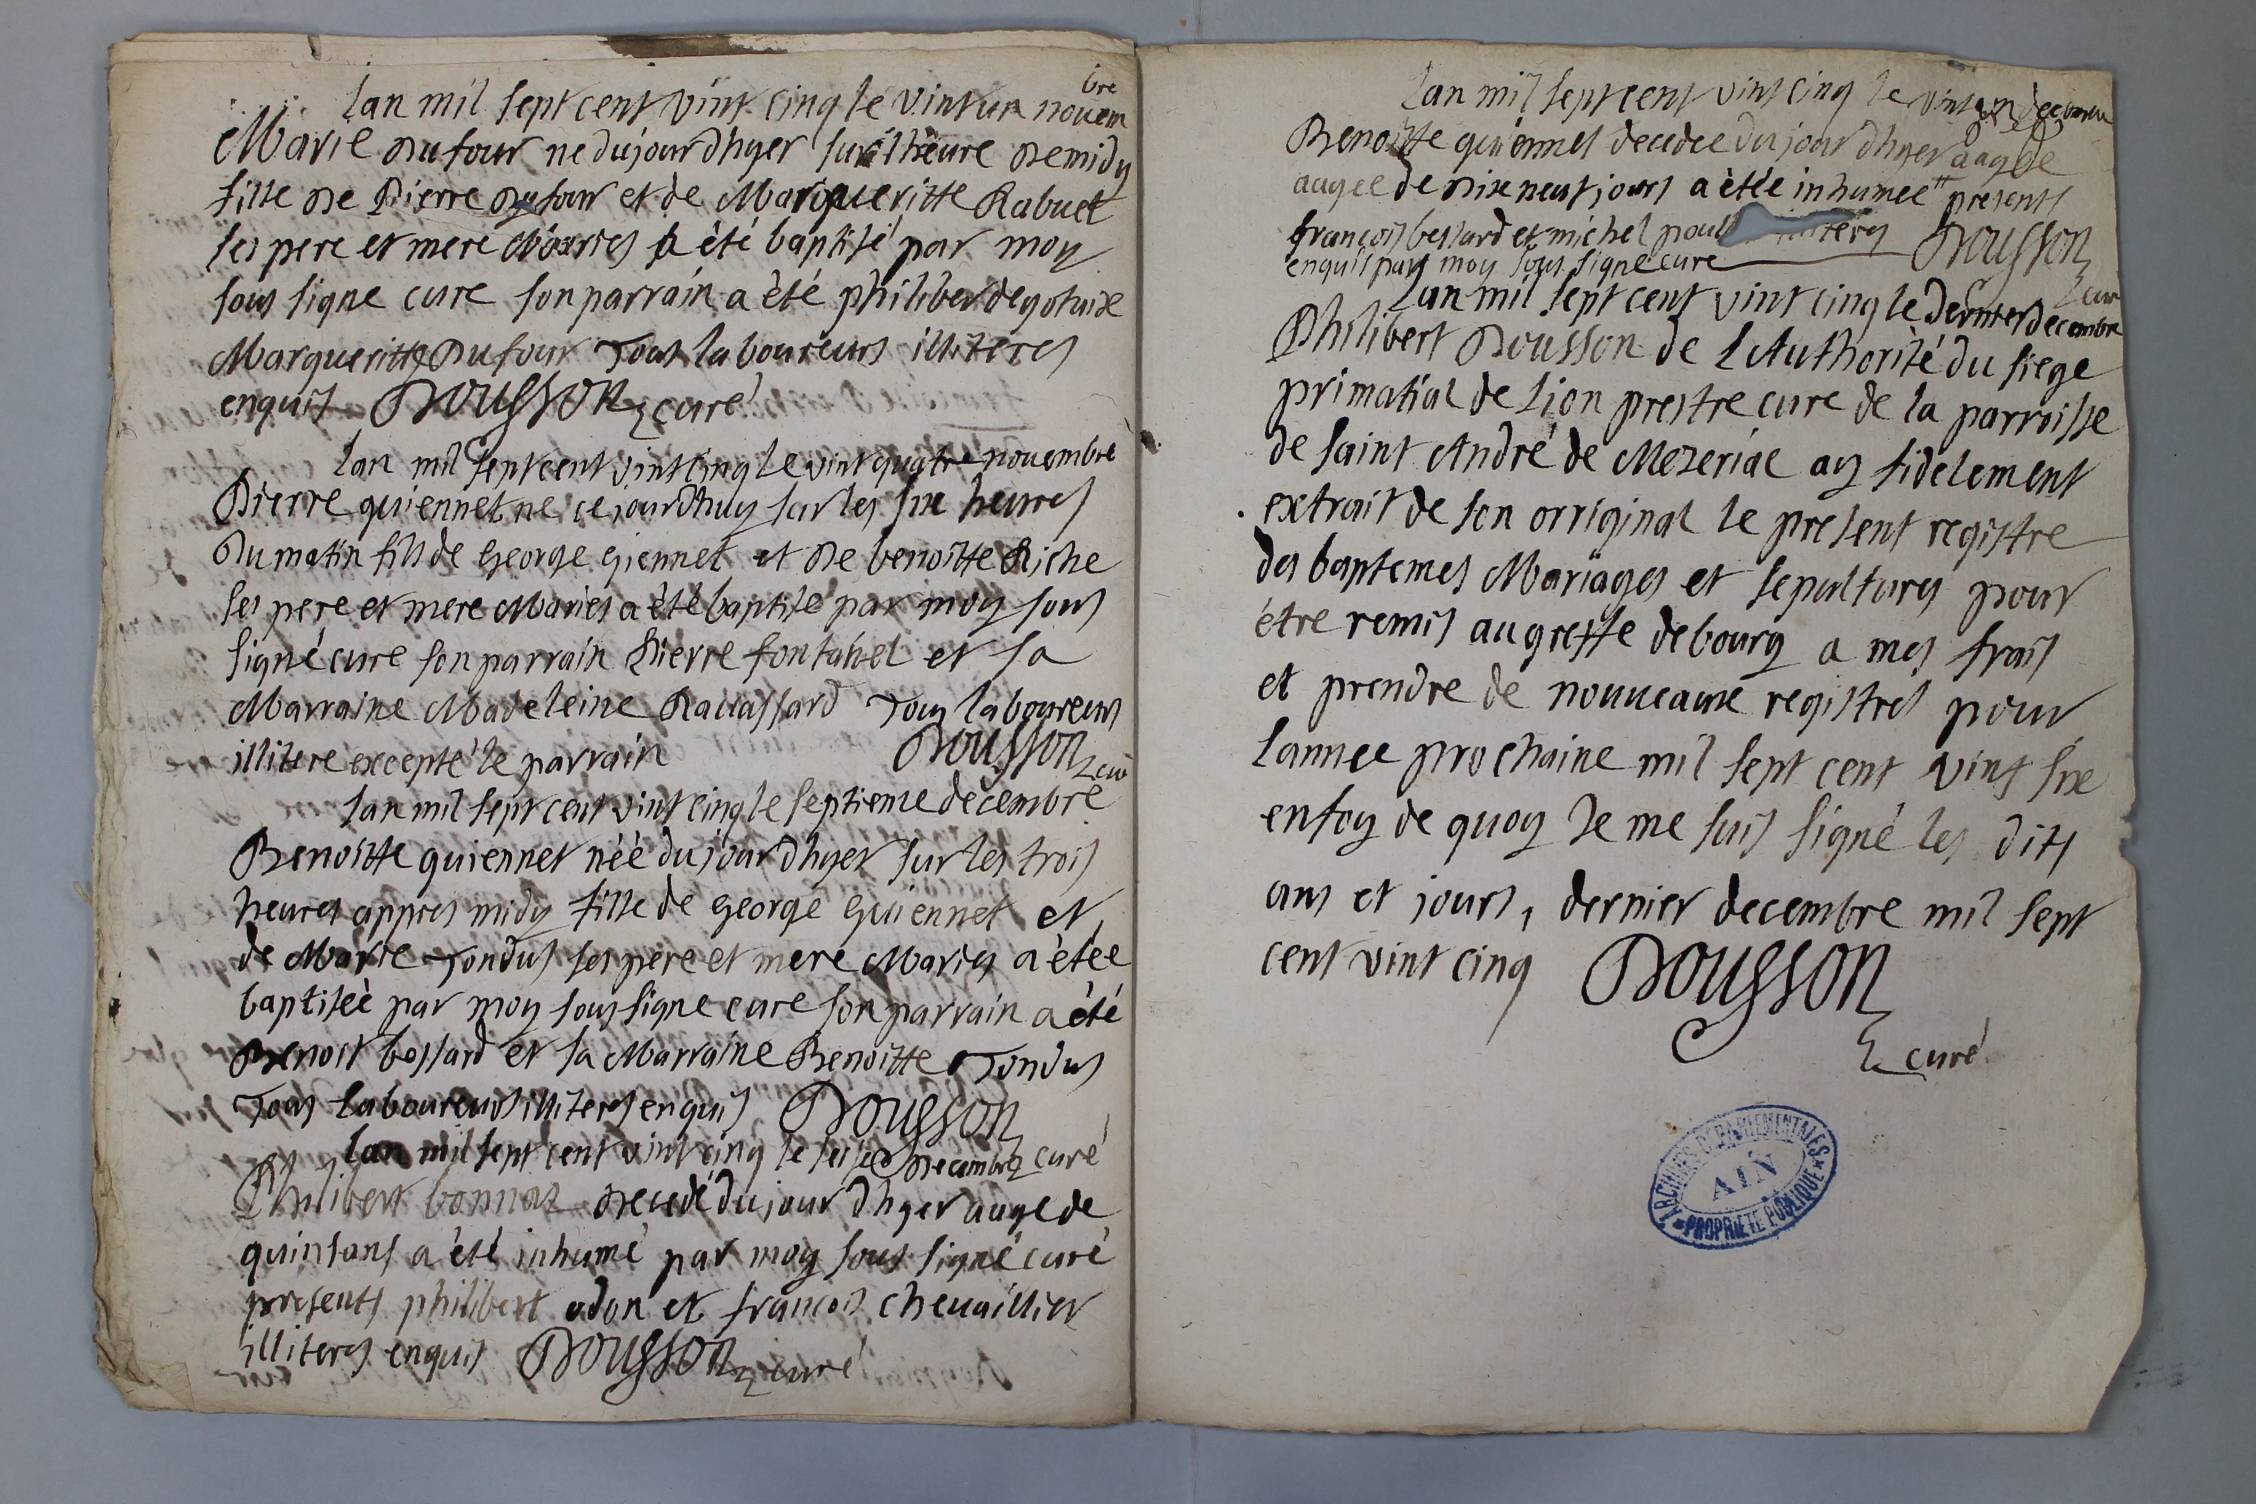 Lan mil sept cent vint cinq le vint un novembre
Marie Dufour ne dujour dhyer sur lheure de midy
fille de Pierre Dufour et de Margueritte Rabuet
ses pere et mere Maries a été baptisé par moy
sous signe cure son parrain a été philibert
Margueritte Dufour Tous laboureurs illiteres
enquis Dousson curé
Lan mil sept cent vint cinq le vint quatre novembre
Pierre quiennet ne cejourdhuy sur les six heures
du matin fils de George giennet et de benoitte Riche
ses pere et mere Maries a été baptisé par moy sous
signé cure son parrain Pierre fontanel et sa
Marraine Madeleine Ravassard Tous laboureurs
illitere excepté le parrain Dousson cur
Lan mil sept cent vint cinq le septieme decembre
Benoitte quiennet néé dujour dhyer sur les trois
heures appres midy fille de George guiennet et
de Marie Tondus ses pere et mere Maries a étée
baptiséè par moy sous signe cure son parrain a été
Benoit bossard et sa Marraine Benoitte Tondus
Tous laboureurs illiteres enquis Dousson
curé
Lan mil sept cent vint cinq le seise decembre
Philibert bonnaz decedé dujour dhyer auge de
quinsans a été inhumé par moy sous signé curé
presents philibert odon et francois chevaillier
illiteres enquis Dousson curé
Lan mil sept cent vint cinq le vint decembre
Benoitte quiennet decedee du jour dhyer aagée
augee de dixneuf jours a étée inhumee presents
francois bessard et michel
enquis par moy sous signe cure Dousson
cur
Lan mil sept cent vint cinq le dernier decembre
Philibert Dousson de LAuthorité du siege
primatial de Lion prestre cure de la parroisse
de saint André de Mezeriac ay fidelement
extrait de son orriginal le present registre
des baptemes Mariages et sepultures pour
étre remis au greffe de bourg a mes frais
et prendre de nouveaux registres pour
lannee prochaine mil sept cent vint six
enfoy de quoy Je me suis signé les dits
ans et jours, dernier decembre mil sept
cent vint cinq Dousson
curé
ARCHIVES DEPARTEMENTALES
AIN
PROPRIETE PUBLIQUE